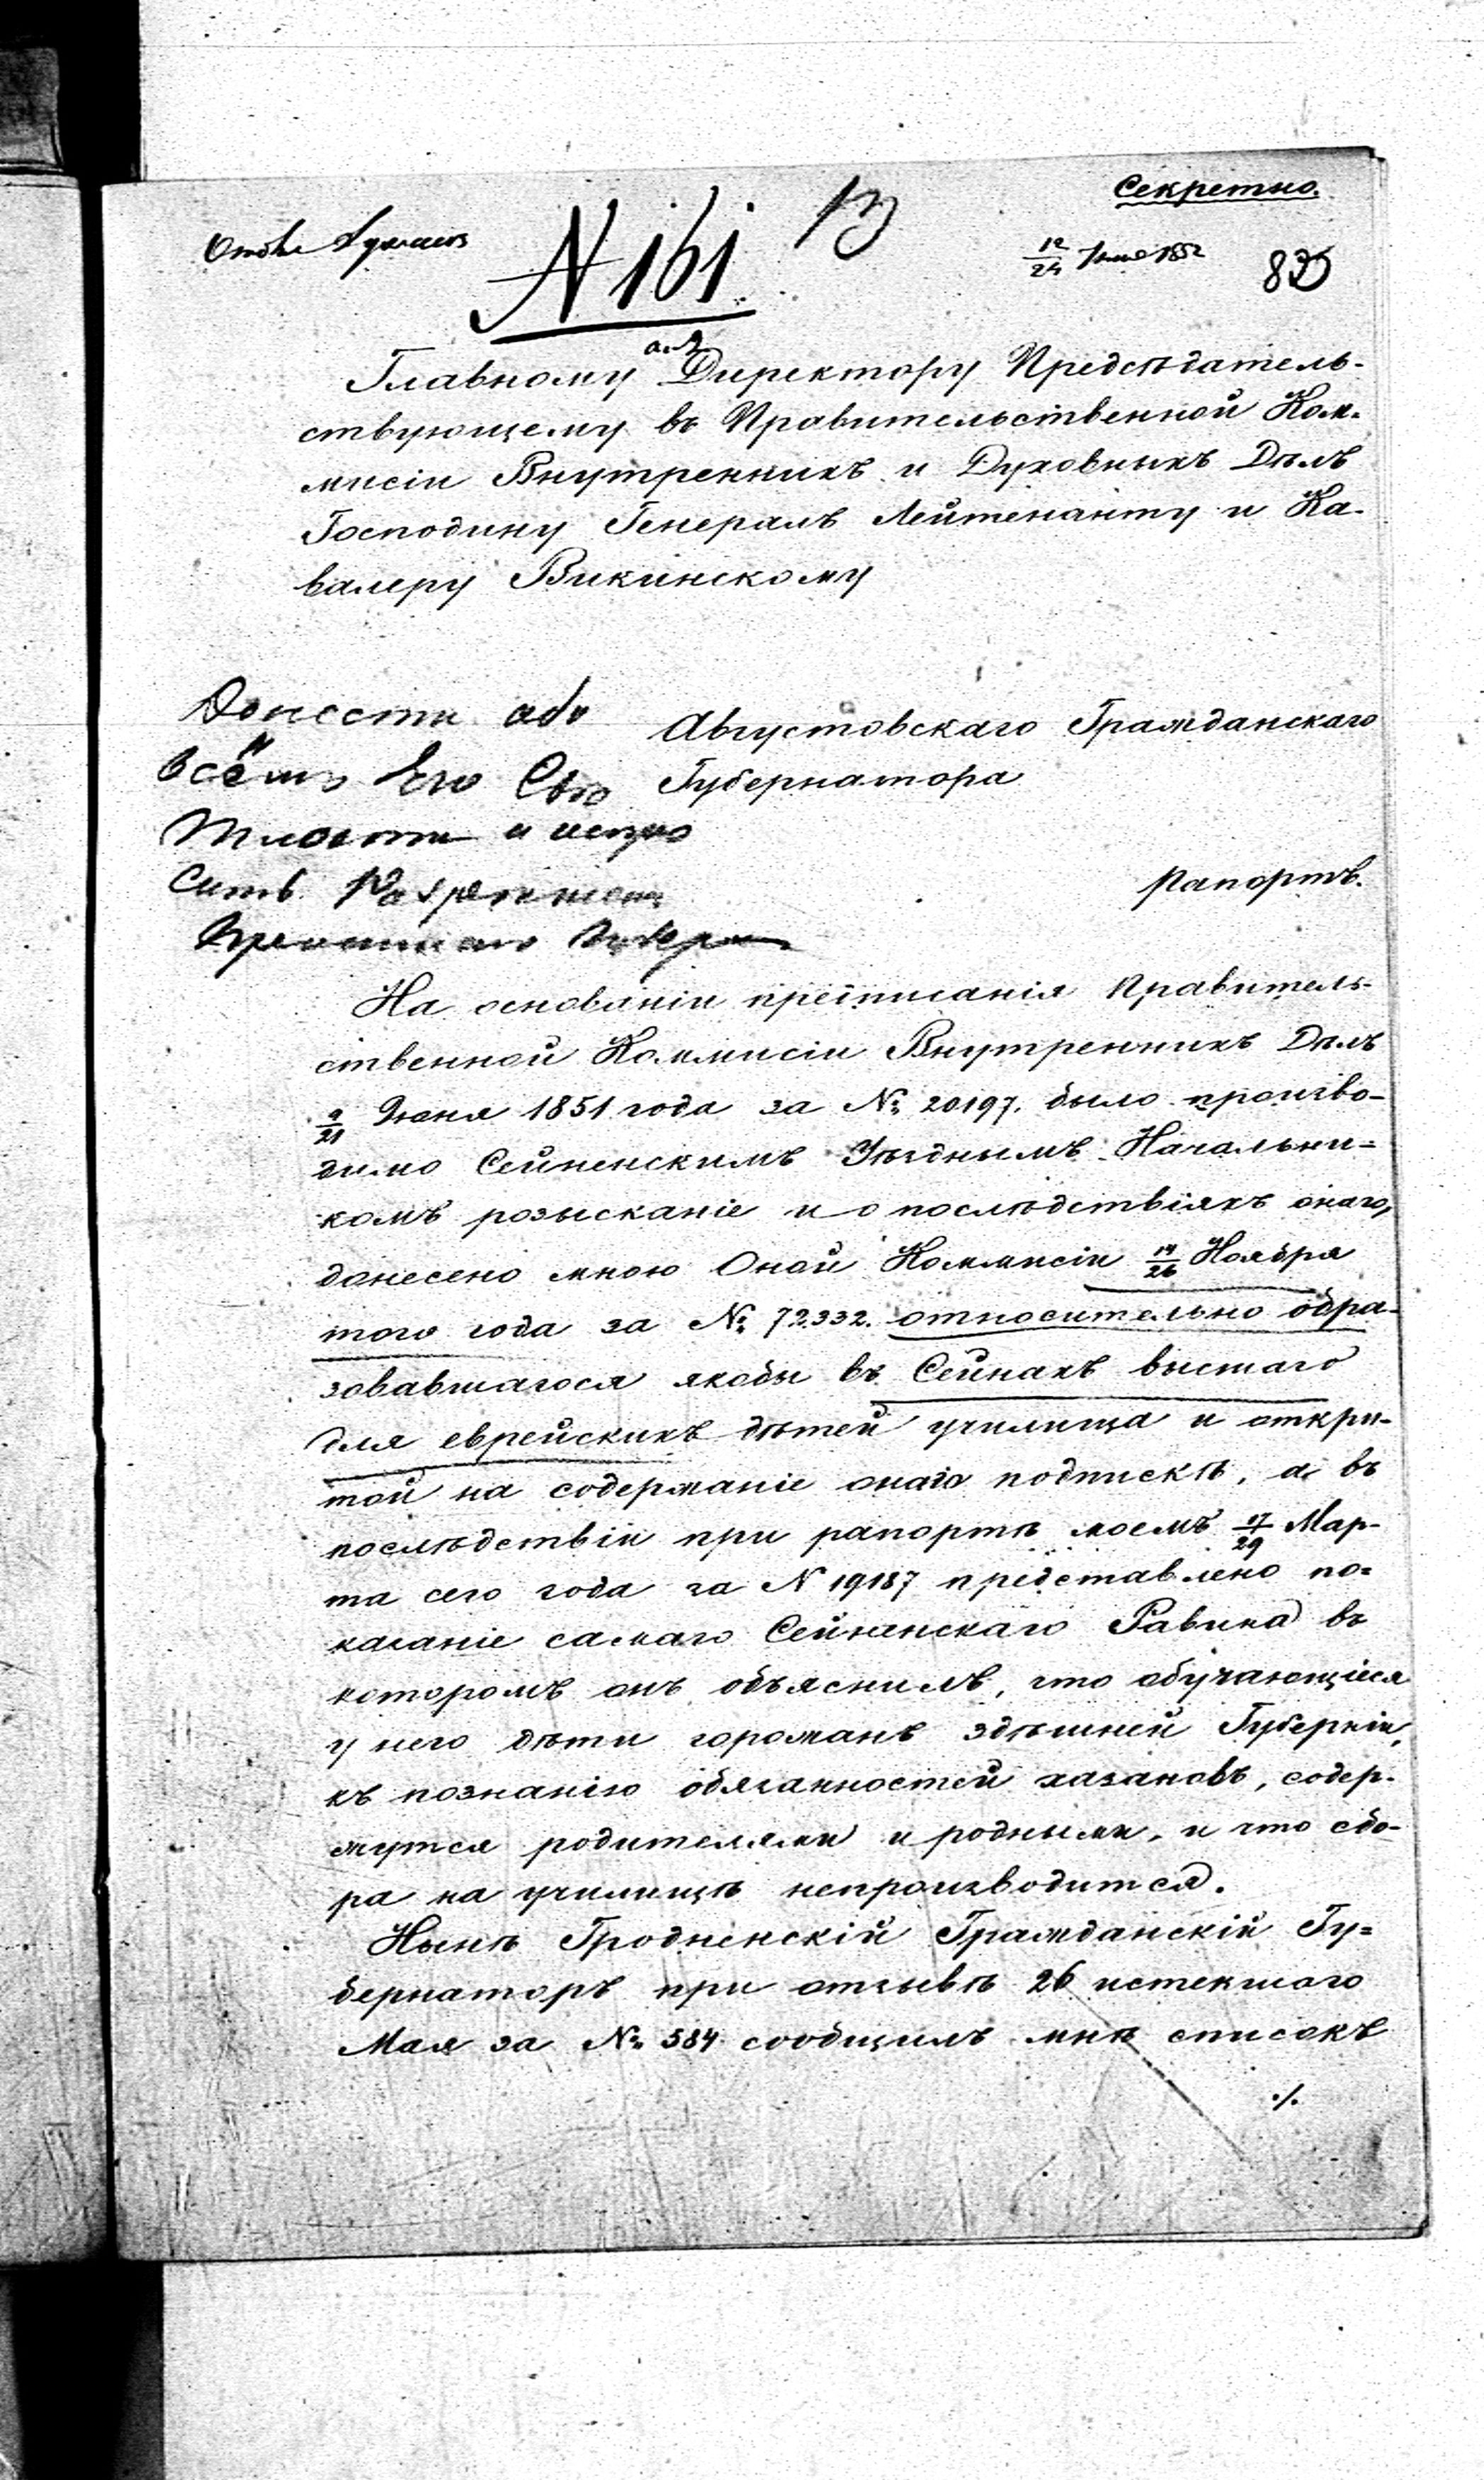 Секретно.
N 161
12/24 Іюня 1852
Главному Директору Предсѣдатель-
ствующему въ Правительственной Ком-
мисіи Внутреннихъ и Духовныхъ Дѣлъ
Господину Генералъ Лейтенанту и Ка-
валеру Викинскому
Донести обо
всёмъ Его Свѣ
тлости и испро
сить
Августовскаго Гражданскаго
Губернатора
рапортъ.
На основаніи предписанія Правитель-
ственной Коммисіи Внутреннихъ Дѣлъ
9/21 Іюня 1851 года за № 20197. было произво-
димо Сейненскимъ Уѣзднымъ Начальни-
комъ розысканіе и о послѣдствіяхъ онаго,
донесено мною Оной Коммисіи 14/26 Ноября
того года за № 72332. относительно обра-
зовавшагося якобы въ Сейнахъ высшаго
для еврейскихъ дѣтей училища и откры-
той на содержаніе онаго подпискѣ, а въ
послѣдствіи при рапортѣ моемъ 17/29 Мар-
та сего года за N 19187 представлено по-
казаніе самаго Сейненскаго Равина въ
которомъ онъ объяснилъ, что обучающіеся
у него дѣти горожанъ здѣшней Губерніи,
къ познанію обязанностей хазановъ, содер-
жутся родителями и родными, и что сбо-
ра на училищѣ непроизводится.
Нынѣ Гродненскій Гражданскій Гу-
бернаторъ при отзывѣ 26 истекшаго
Мая за № 584 сообщилъ мнѣ списокъ
./.